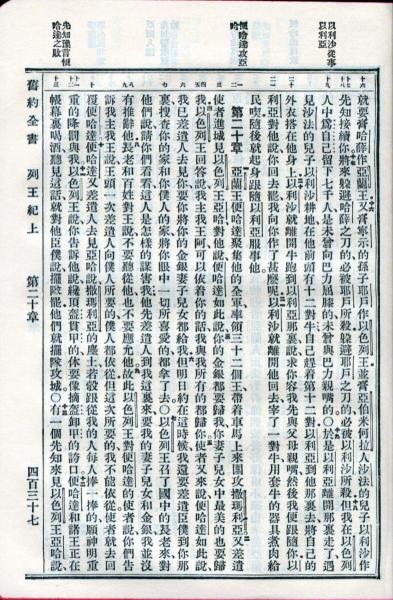 以利沙從事
以利亞
便哈達攻亞
哈
先知豫言便
哈達之敗
就要膏哈薛作亞蘭王又膏寧示的孫子耶戶作以色列王並膏亞伯米何拉人沙法的兒子以利沙作
先知接續你將來躱避哈薛之刀的必被耶戶所殺躱避耶戶之刀的必被以利沙所殺但我在以色列
人中爲自己留下七千人是未曾向巴力屈膝的未曾與巴力親嘴的○於是以利亞離開那裏走了遇
見沙法的兒子以利沙耕地在他前頭有十二對牛自己趕着第十二對以利亞到他那裏去將自己的
外衣搭在他身上以利沙就離開牛跑到以利亞那裏說求你容我先與父母親嘴然後我便跟隨你以
利亞對他說你回去罷我向你作了甚麽呢以利沙就離開他回去宰了一對牛用套牛的器具煮肉給
民喫隨後就起身跟隨以利亞服事他
第二十章 亞蘭王便哈達聚集他的全軍率領三十二個王帶着車馬上來圍攻撒瑪利亞又差遣
使者進城見以色列王亞哈對他說便哈達如此說你的金銀都要歸我你妻子兒女中最美的也要歸
我以色列王回答說我主我王阿可以依着你的話我與我所有的都歸你使者又來說便哈達如此說
我已差遣人去見你要你將你的金銀妻子兒女都給我但明日約在這時候我還要差遣臣僕到你那
裏搜查你的家和你僕人的家將你眼中一切所喜愛的都拿了去○以色列王召了國中的長老來對
他們說請你們看看這人是怎樣的謀害我他先差遣人到我這裏來要我的妻子兒女和金銀我並沒
有推辭他長老和百姓對王說不要聽從他也不要應允他故此以色列王對便哈達的使者說你們告
訴我主我王說王頭一次差遣人向僕人所要的僕人都依從但這次所要的我不能依從使者就去回
覆便哈達便哈達又差遣人去見亞哈說撒瑪利亞的塵土若彀跟從我的人每人捧一捧的願神明重
重的降罰與我以色列王說你告訴他說纔頂盔貫甲的休要像摘盔卸甲的誇口便哈達和諸王正在
帳幕裏喝酒聽見這話就對他臣僕說擺隊罷他們就擺隊攻城○有一個先知來見以色列王亞哈說
舊約全書 列王紀上 第二十章 四百三十七